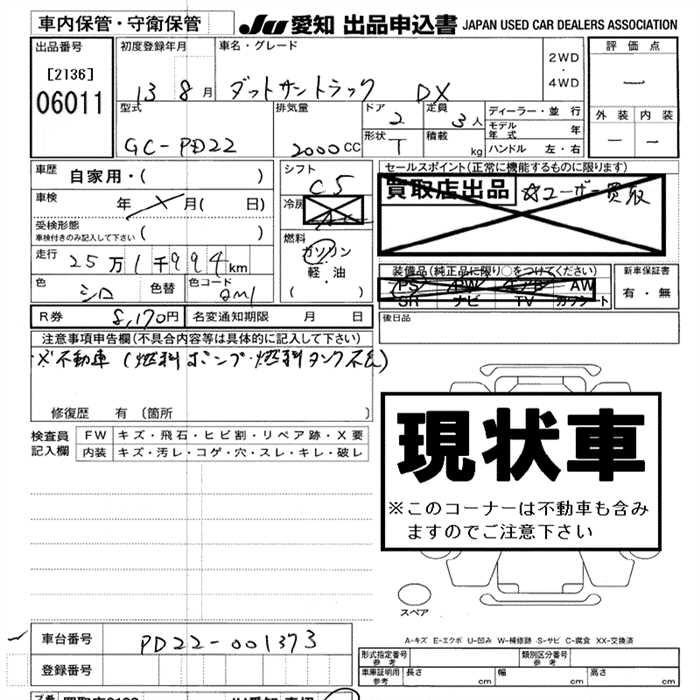 車内保管・守衛保管
JU 愛知 出品申込書 JAPAN USED CAR DEALERS ASSOCIATION
出品番号 [2136] 06011
初度登録年月 13 8月
車名・グレード ダットサントラック DX
2WD・4WD
評価点 ー
外装 ー 内装 ー
型式 GC-PD22
排気量 2000CC
ドア 2
定員 3人
形状 T
積載 kg
ディーラー・並行
モデル年式 年
ハンドル 左・右
車歴 自家用・( )
車検 年 月( 日)
受検形態
車検付きのみ記入して下さい ( )
走行 25万1千994km
色 シロ 色替 色コード QM1
シフト C5
冷房 AC
燃料 ガソリン
軽・油
( )
セールスポイント(正常に機能するものに限ります)
買取店出品 ☆ユーザー買取
装備品(純正品に限り○をつけてください)
PS PW エアB AW
SR ナビ TV カワシート
新車保証書 有・無
R券 8,170円 名変通知期限 月 日
後日品
注意事項申告欄(不具合内容等は具体的に記入して下さい)
※不動車(燃料ポンプ・燃料タンク不良)
修復歴 有〔箇所 〕
検査員記入欄
FW キズ・飛石・ヒビ割・リペア跡・X要
内装 キズ・汚レ・コゲ・穴・スレ・キレ・破レ
現状車
※このコーナーは不動車も含み
ますのでご注意下さい
スペア
A-キズ E-エクボ U-凹み W-補修跡 S-サビ C-腐食 XX-交換済
車台番号 PD22-001373
登録番号
形式指定番号 参考
類別区分番号 参考
車庫証明用 参考 長さ cm 幅 cm 高さ cm